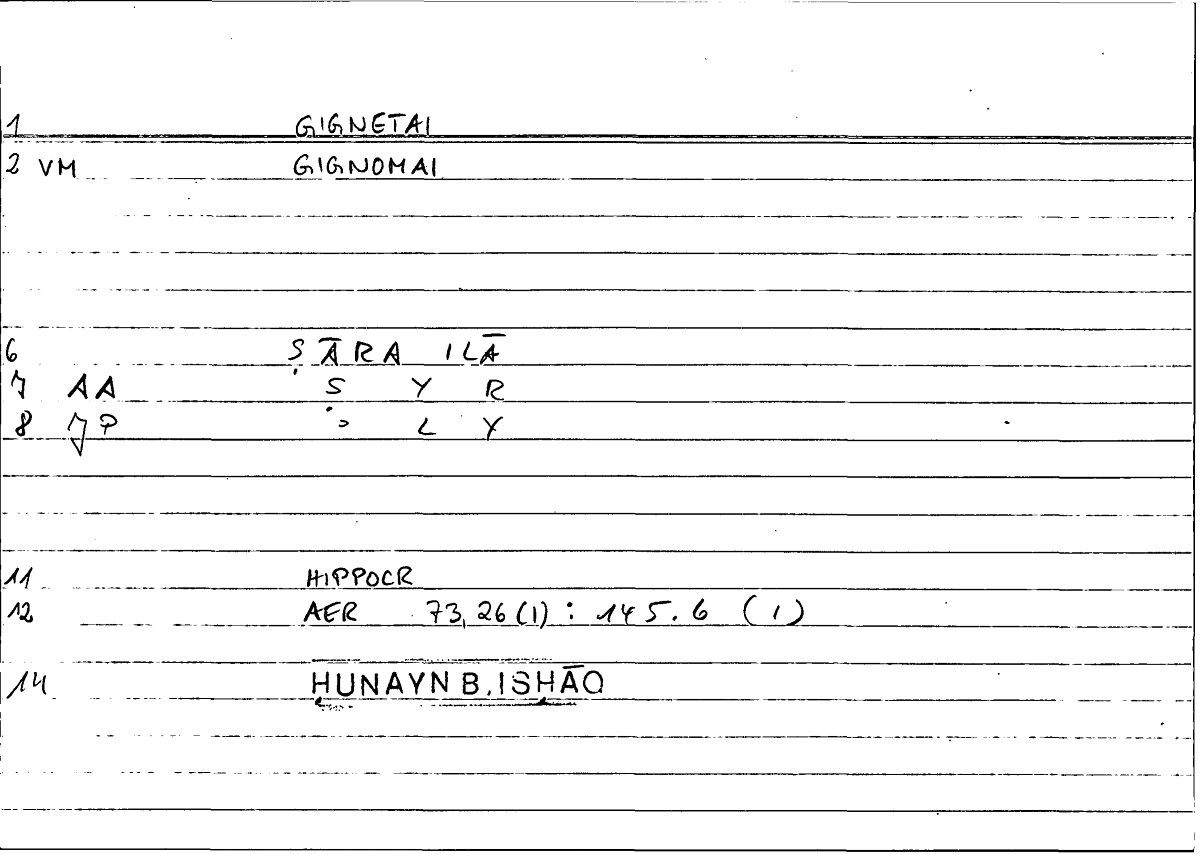 1 GIGNETAI
2 VM GIGNOMAI
6 ṢĀRA ILĀ
7 AA Ṣ Y R
8 JP ʾ L Y
11 HIPPOCR
12 AER 73,26(1): 145.6 (1)
14 ḤUNAYN B. ISḤĀQ